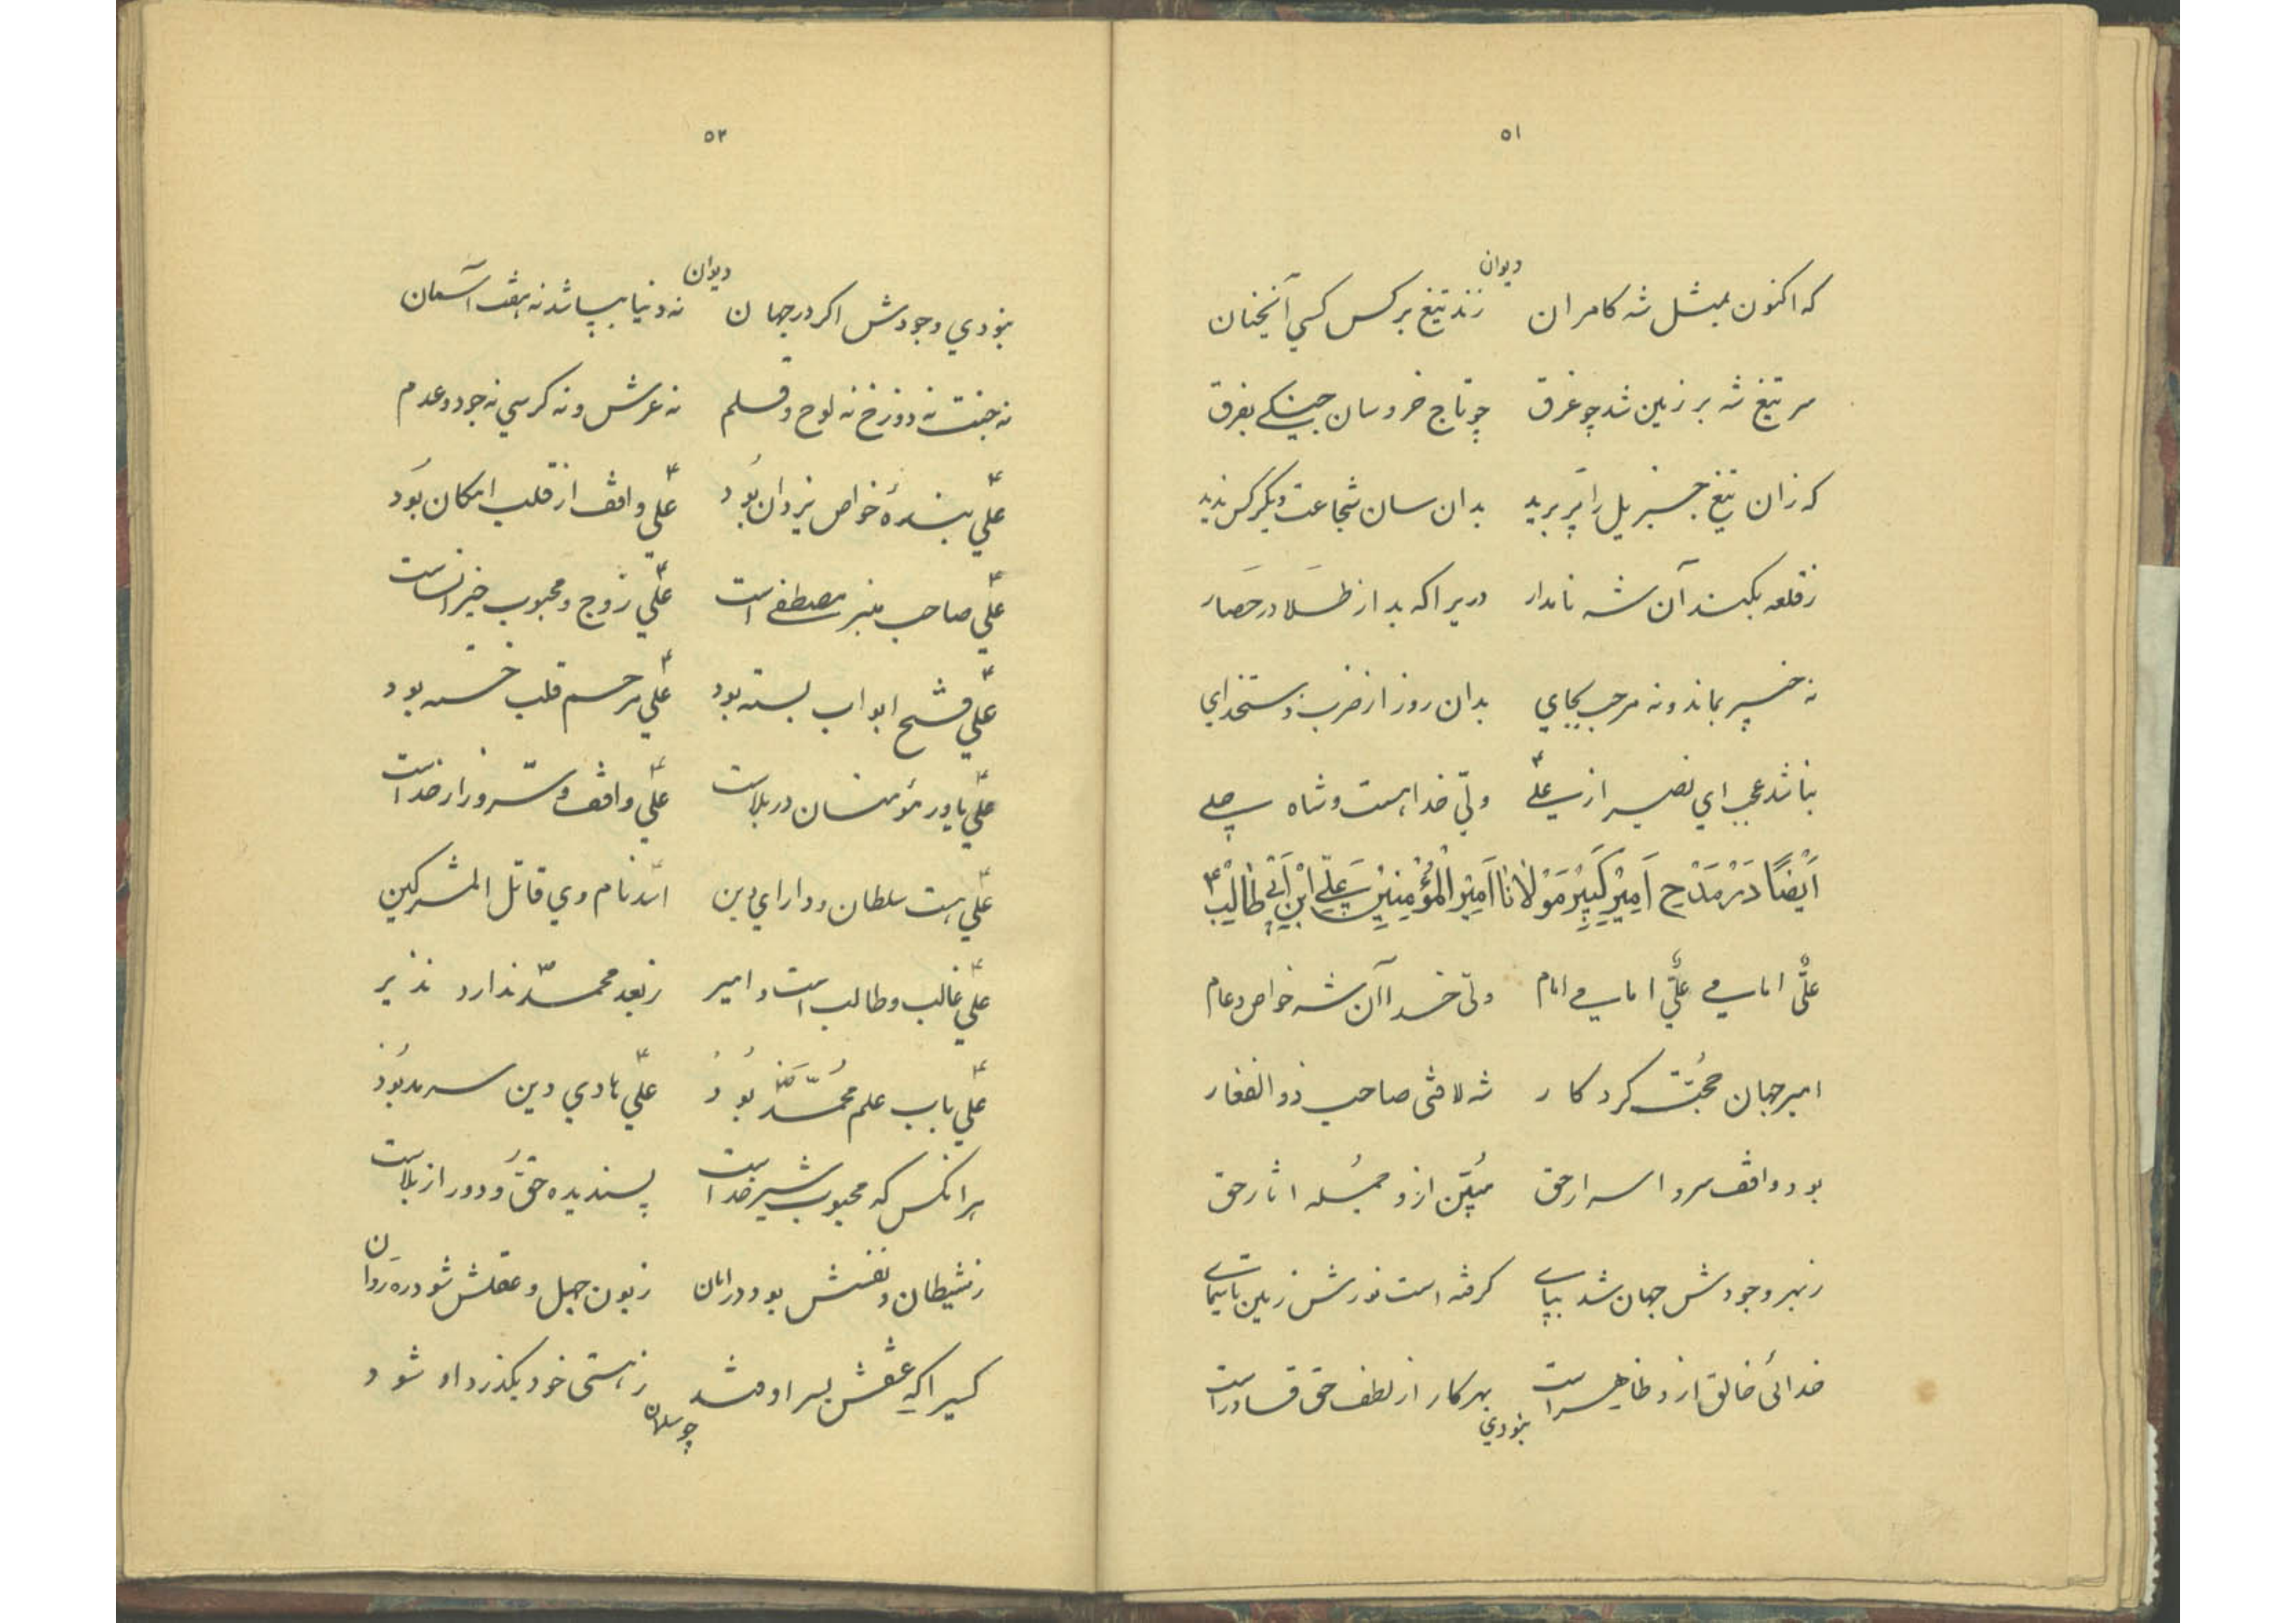 ۵۱
دیوان
که اکنون بمثل شه کامران زند تیغ بر کس کسي آنچنان
سر تیغ شه بر زمین شد چو غرق چو تاج خروسان جنگی بفرق
که زان تیغ جبریل را پر برید بدان سان شجاعت دیگر کس ندید
ز قلعه بکند آن شه نامدار دریرا که بد از طلا در حصار
نه خیبر بماند و نه مرحب بجاي بدان روز از ضرب دست خداي
نباشد عجب اي نصیر از علی ولیّ خدا هست و شاه
اَیْضًا دَرْ مَدْحِ اَمِیْرِ کَبِیْر مَوْلانَا اَمِیْرِ الْمُؤْمِنِیْنْ عَلِیّ اِبْنِ اَبِیْ طَالِبْ ۴
علیّ امامي علیّ امامي امام ولیّ خدا آن شه خواص و عام
امیر جهان حجّت کردکار شه لافتی صاحب ذوالفقار
بود واقف سر و اسرار حق مبیّن ازو جمله اثار حق
ز بهر وجودش جهان شد بپاے کرفته است نورش زمین تا سماے
خدائی خالق ازو ظاهر است بهر کار از لطف حق قادر است
نبودي
۵۲
دیوان
نبودي وجودش اکر در جهان نه دنیا بپا شد نه هفت آسمان
نه جنت نه دوزخ نه لوح و قلم نه عرش و نه کرسي نه جود و عدم
علّي ۴ بندهٔ خواص یزدان بُوَد علّي ۴ واقف از قلب امکان بُوَد
علّي ۴ صاحب منبر مصطفے است علّي ۴ زوج و محبوب خیرالنساست
علّي ۴ فتح ابواب بسته بود علّي ۴ مرحم قلب خسته بود
علّي ۴ یاور مؤمنان در بلاست علّي ۴ واقف و سرّ و راز خداست
علّي ۴ هست سلطان و داراي دین اسد نام وي قاتل المشرکین
علّي ۴ غالب و طالب است و امیر ز بعد محمّد ندارد نذیر
علّي ۴ باب علم محمّد بُوَد علّي ۴ هادي دین سرمد بُوَد
هر انکس که محبوب شیر خداست پسندیده حقّ و دور از بلاست
ز شیطان و نفسش بود در امان زبون جهل و عقلش شود ره روان
کسیرا که عشقش بسر اوفتد ز هستی خود بکذرد او شود
چو سلمان